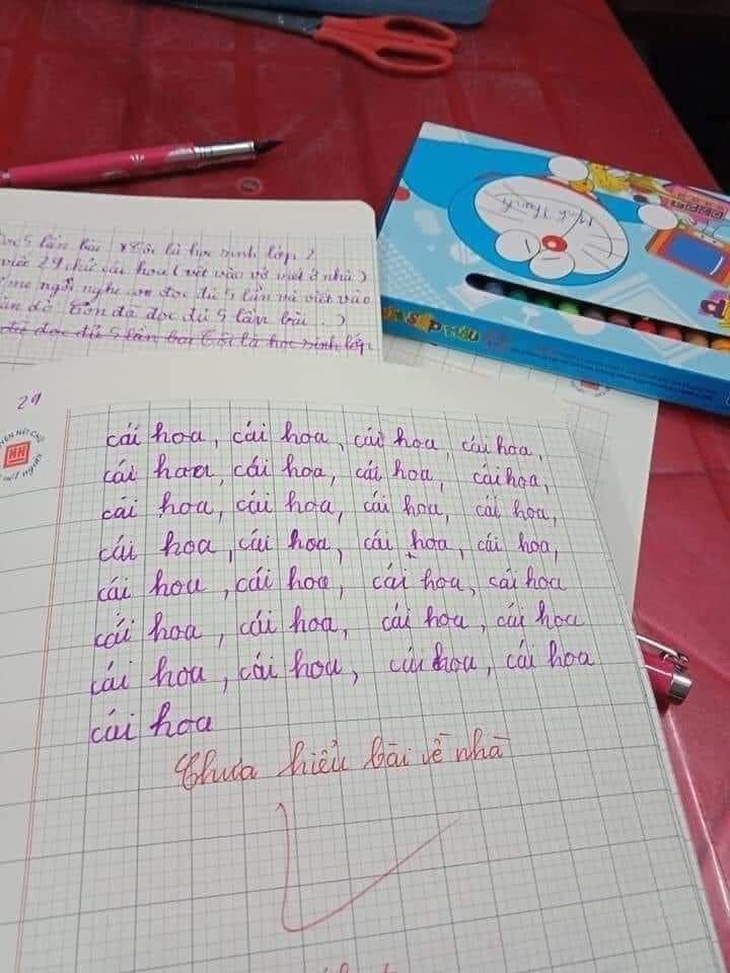 5 lần bài "Tôi là học sinh lớp 2
viết 29 chữ cái hoa (viết vào vở viết ở nhà)
mẹ ngồi nghe con đọc đủ 5 lần và viết vào
đó: Con đã đọc đủ 5 lần bài ...)
đã đọc đủ 5 lần bài Tôi là học sinh lớp
Minh Thanh
SÁP MÀU
29
HN
cái hoa, cái hoa, cái hoa, cái hoa,
cái hoa, cái hoa, cái hoa, cái hoa,
cái hoa, cái hoa, cái hoa, cái hoa,
cái hoa, cái hoa, cái hoa, cái hoa,
cái hoa, cái hoa, cái hoa, cái hoa
cái hoa, cái hoa, cái hoa, cái hoa
cái hoa, cái hoa, cái hoa, cái hoa
cái hoa
Chưa hiểu bài về nhà